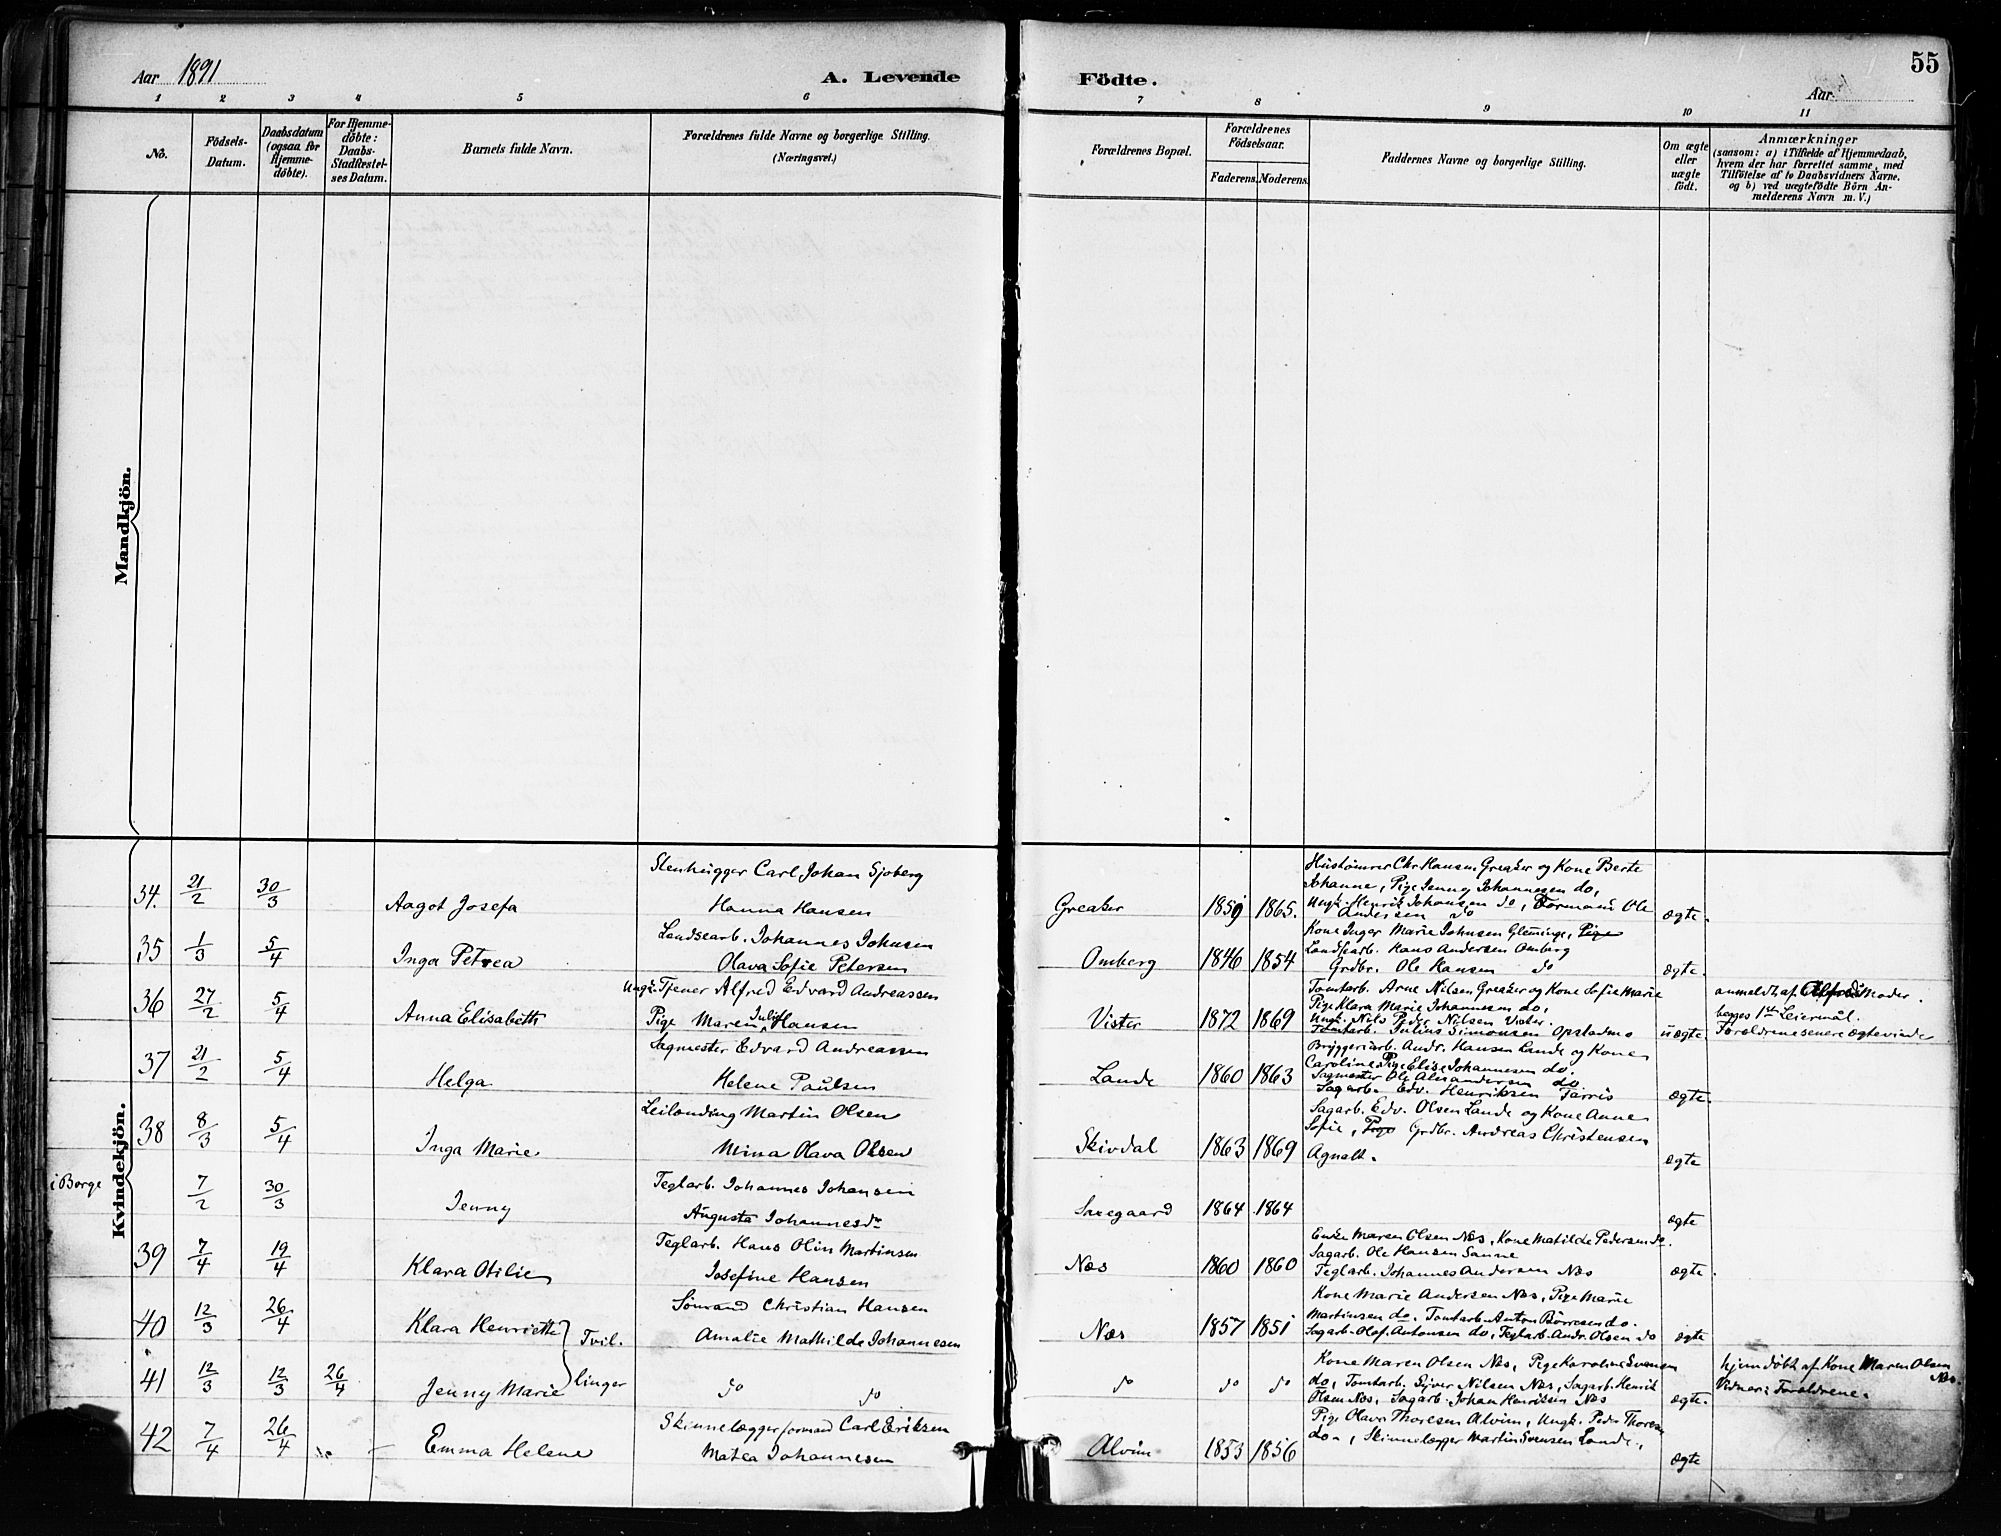 55
Aar 1891
A. Levende Födte.
Aar
1 2 3 4 5 6 7 8 9 10 11
No.
Födsels-Datum.
Daabsdatum (ogsaa for Hjemme-döbte).
For Hjemme-döbte: Daabs-Stadfæstel-ses Datum.
Barnets fulde Navn.
Forældrenes fulde Navne og borgerlige Stilling. (Næringsvei.)
Forældrenes Bopæl.
Forældrenes Födselsaar.
Faderens. Moderens.
Faddernes Navne og borgerlige Stilling.
Om ægte eller uægte födt.
Anmærkninger
(saasom: a) i Tilfælde af Hjemmedaab, hvem der har forrettet samme, med Tilföielse af to Daabsvidners Navne, og b) ved uægtefödte Börn Anmelderens Navn m. V.)
Mandkjön.
Kvindekjön.
34. 21/2 30/3 Aagot Josefa
Stenhugger Carl Johan Sjoberg
Hanna Hansen
Greaker 1859 1865.
Hustømrer Chr. Hansen Greaker og Kone Berte
Johanne, Pige Jenny Johannesen do,
Ungk. Henrik Johansen do, Formand Ole
Andersen do
ægte.
35 1/3 5/4 Inga Petrea
Landsearb. Johannes Johnsen
Olava Sofie Petersen
Omberg 1846 1854
Kone Inger Marie Johnsen Glemminge, Pige
Landsearb. Hans Andersen Omberg
Grdbr. Ole Hansen do
ægte.
36 27/2 5/4 Anna Elisabeth
Ungk. Tjener Alfred Edvard Andreassen
Pige Maren Julie Hansen
Vister 1872 1869
Tomtarb. Arne Nilsen Greaker og Kone Sofie Marie
Pige Klara Marie Johannesen do,
Ungk. Nils Peder Nilsen Vister.
Tomtarb. Julius Simonsen Opstadmo
uægte
anmeldt af Moder.
begges 1ste Leiermål.
Forældrene senere ægteviede
37 21/2 5/4 Helga
Sagmester Edvard Andreassen
Helene Paulsen
Lande 1860 1863
Bryggeriarb. Andr. Hansen Lande og Kone
Caroline, Pige Elise Johannesen do.
Sagmester Ole Alexandersen do
Sagarb. Edv. Henriksen Tarris
ægte.
38 8/3 5/4 Inga Marie
Leilending Martin Olsen
Mina Olava Olsen
Skivdal 1863 1869
Sagarb. Edv. Olsen Lande og Kone Anne
Sofie, Pige Grdbr. Andreas Christensen
Agnalt.
ægte
i Borge 7/2 30/3 Jenny
Teglarb. Johannes Johansen
Augusta Johannesdr
1864 1864
ægte
39 7/4 19/4 Klara Otilie
Teglarb. Hans Olin Martinsen
Josefine Hansen
Næs 1860 1860
Enke Maren Olsen Næs, Kone Matilde Pedersen do.
Sagarb. Ole Hansen Sanne
Teglarb. Johannes Andersen Næs
ægte.
40 12/3 26/4 Klara Henriette } Tvil-
Sömand Christian Hansen
Amalie Mathilde Johannesen
Næs 1857 1851
Kone Marie Andersen Næs, Pige Marie
Martinsen do, Tomtarb. Anton Börresen do.
Sagarb. Olaf Antonsen do, Teglarb. Andr. Olsen do
ægte
41 12/3 12/3 26/4 Jenny Marie } linger
do do
do do do
Kone Maren Olsen Næs, Pige Karoline Svensen
do, Tomtarb. Syver Nilsen Næs, Sagarb. Henrik
Olsen Næs, Sagarb. Johan Henriksen Næs
ægte.
hjemdöbt af Kone Maren Olsen
Næs.
Vidner: Forældrene.
42 7/4 26/4 Emma Helene
Skinnelægger formand Carl Eriksen
Matea Johannesen
Alvim 1853 1856
Pige Olava Thoresen Alvim, Ungk. Peder Thoresen
do, Skinnelægger Martin Svensen Lande.
ægte